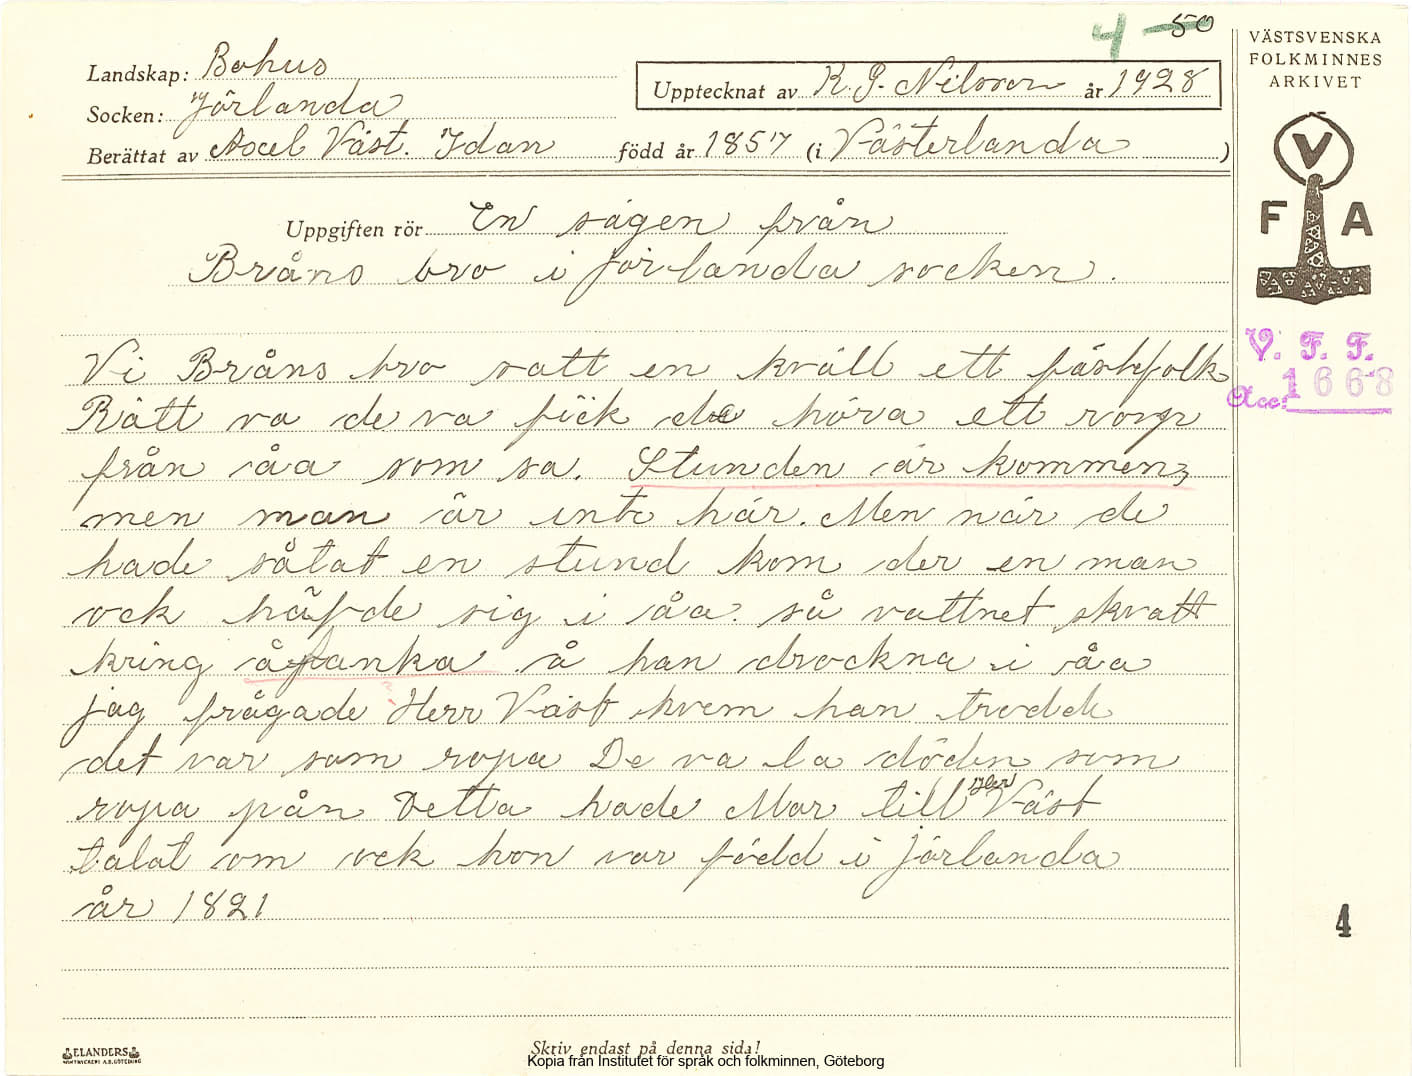 4 - 50
Landskap: Bohus
Socken: Jörlanda
Upptecknat av K. G. Nilsson år 1928
Berättat av Axel Väst. Ydan född år 1857 (i Västerlanda)
Uppgiften rör En sägen från
Bråns bro i Jörlanda socken.
Vi Bråns bro satt en kväll ett fästefolk
Rätt va de va fick de höra ett rop
från åa som sa. Stunden är kommen,
men man är inte här. Men när de
hade såtat en stund kom der en man
ock häfde sig i åa. så vattnet skvatt
kring åflanka å han drockna i åa
jag frågade Herr Väst kvem han trodde
det var som ropa De va la döden som
ropa pån Detta hade Mor till Her Väst
talat om ock hon var född i Jörlanda
år 1821
VÄSTSVENSKA
FOLKMINNES
ARKIVET
V
F A
V. F. F.
Acc: 1668
4
ELANDERS
Skriv endast på denna sida!
Kopia från Institutet för språk och folkminnen, Göteborg